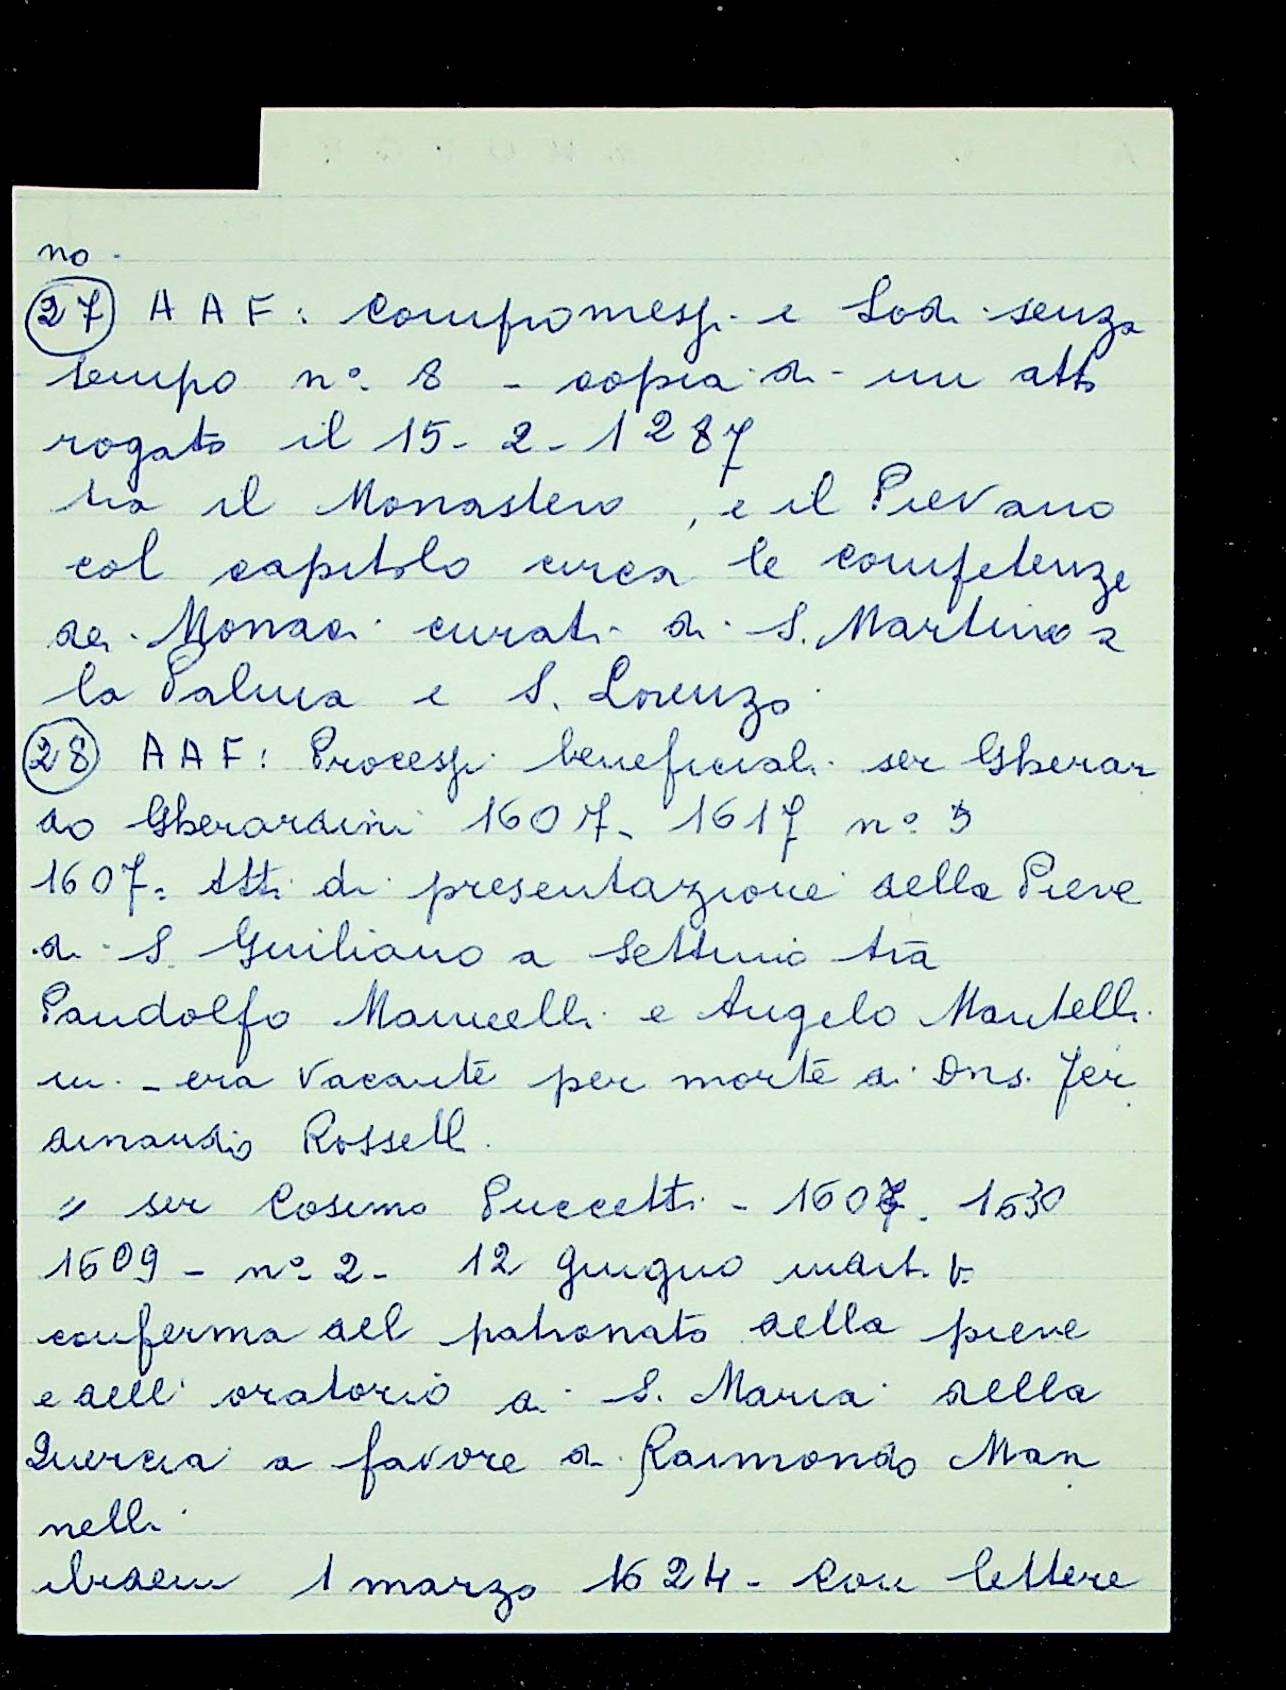 no.
(27) A A F: Compromessi e Lodi senza
tempo n° 8 - copia di un atto
rogato il 15-2-1287
tra il Monastero, e il Pievano
col capitolo circa le competenze
dei Monaci curati di S. Martino a
la Palma e S. Lorenzo.
(28) A A F: Processi beneficiali ser Gherar
do Gherardini 1607- 1617 n° 3
1607= Atti di presentazione della Pieve
di S. Giuliano a Settimo tra
Pandolfo Mannelli e Angelo Mantelli
ni - era vacante per morte di Dns. Fer
dinandio Rosselli.
" ser Cosimo Puccetti - 1607- 1630
1609 - n° 2- 12 giugno
conferma del patronato della pieve
e dell' oratorio di S. Maria della
Quercia a favore di Raimondo Man
nelli.
ibidem 1 marzo 1624 - Con lettere